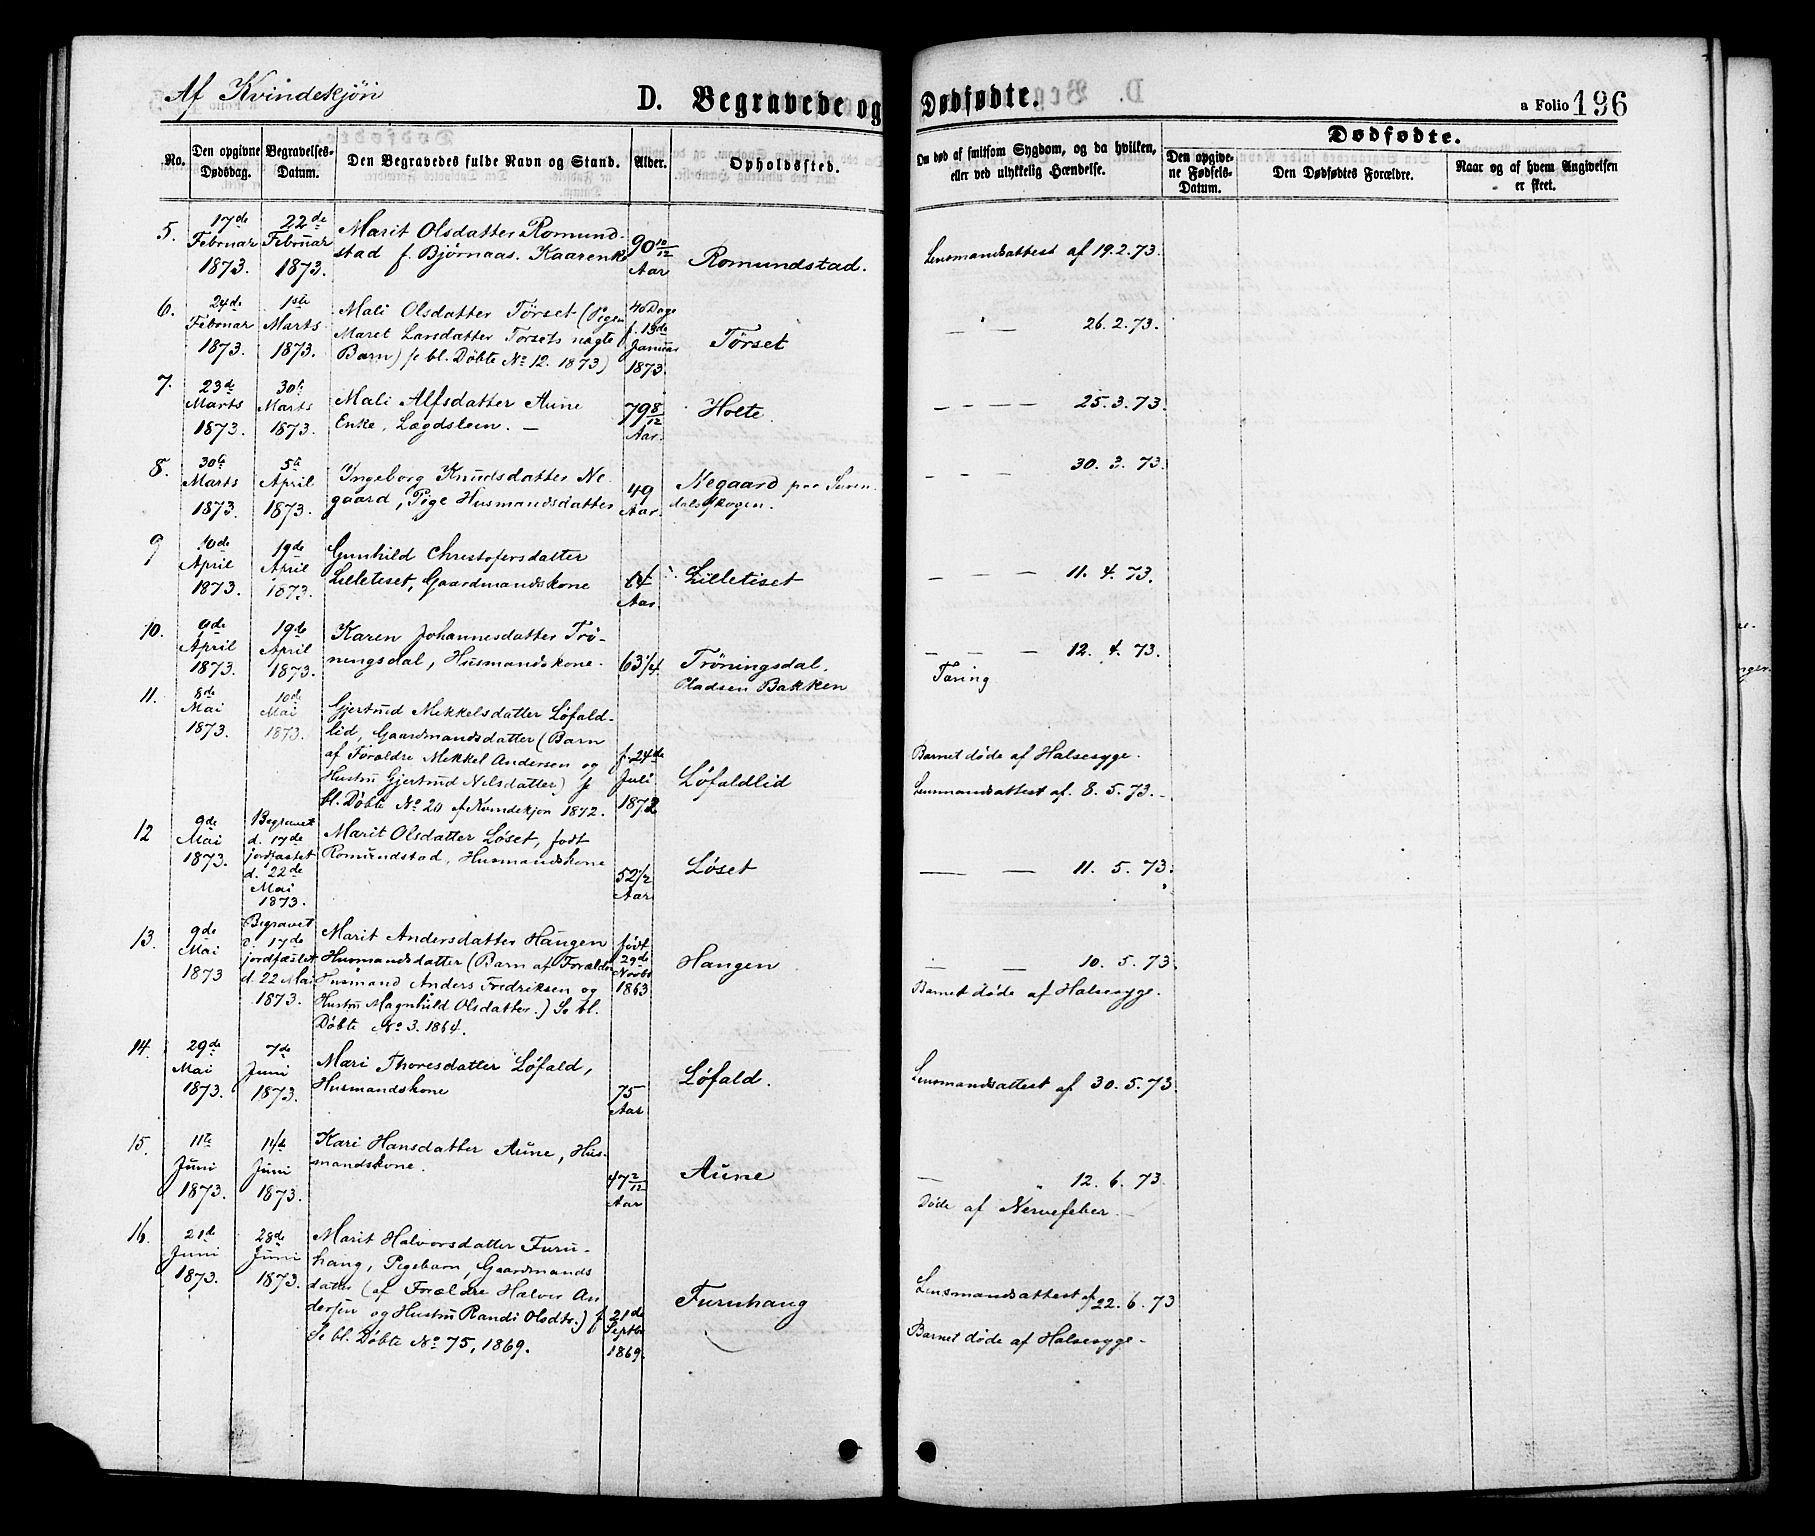 Af Kvindekjön
D. Begravede og Dødfødte.
a Folio 196
No.
Den opgivne Dødsdag.
Begravelses-Datum.
Den Begravedes fulde Navn og Stand.
Alder.
Opholdssted.
Om død af smitsom Sygdom, og da hvilken, eller ved ulykkelig Hændelse.
Dødfødte.
Den opgivne Fødsels-Datum.
Den Dødfødtes Forældre.
Naar og af hvem Angivelsen er skeet.
5.
17de Februar 1873.
22de Februar 1873.
Marit Olsdatter Romund-
stad f. Bjørnaas. Kaarenke
90 10/12 Aar
Romundstad.
Lensmandsattest af 19.2.73.
6.
24de Februar 1873.
1ste Marts 1873.
Mali Olsdatter Tørset (Pigen
Maret Larsdatter Torsets uægte
Barn) se bl. Döbte No 12. 1873)
40 Dage f. 13de Januar 1873.
Tørset
— " — 26.2.73.
7.
23de Marts 1873.
30te Marts 1873.
Mali Alfsdatter Aune
Enke, Lægdslem. —
79 8/12 Aar.
Holte.
— — — — 25.3.73.
8.
30te Marts 1873.
5te April 1873.
Ingeborg Knudsdatter Ne-
gaard, Pige Husmandsdatter
49 Aar.
Negaard paa Suren-
dalsskogen.
— — — 30. 3. 73.
9
10de April 1873.
19de April 1873.
Gunhild Christofersdatter
Lilletiset, Gaardmandskone
64 Aar.
Lilletiset
— — — 11. 4. 73.
10.
9de April 1873.
19de April 1873.
Karen Johannesdatter Trö-
ningsdal, Husmandskone.
63 1/4
Tröningsdal,
Pladsen Bakken
— — — 12. 4. 73.
Tæring
11.
8de Mai 1873.
10de Mai 1873.
Gjertrud Mekkelsdatter Løfald-
lid, Gaardmandsdatter (Barn
af Forældre Mekkel Andersen og
Hustru Gjertrud Nilsdatter) se
bl. Döbte No 20 af Kvindekjön 1872.
f. 24de Juli 1872
Löfaldlid
Barnet døde af Halsesyge.
Lensmandsattest af. 8. 5. 73. —
12
9de Mai 1873.
Begravet d. 17de jordfæstet d. 22de Mai 1873.
Marit Olsdatter Løset, født
Romundstad, Husmandskone
52 1/2 Aar
Løset
— — 11. 5. 73.
13.
9de Mai 1873
Begravet d. 17de jordfæstet d. 22 Mai 1873.
Marit Andersdatter Haugen
Husmandsdatter (Barn af Forældre
Husmand Anders Fredriksen og
Hustru Magnhild Olsdatter.) Se bl.
Döbte No 3. 1864.
født 29de Novbr 1863
Haugen
— — 10. 5. 73.
Barnet døde af Halsesyge.
14.
29de Mai 1873.
7de Juni 1873.
Mari Thoresdatter Löfald,
Husmandskone
75 Aar
Löfald.
Lensmandsattest af 30. 5. 73
15.
11te Juni 1873.
14de Juni 1873.
Kari Hansdatter Aune, Hus-
mandskone.
47 2/12 Aar
Aune
— " 12. 6. 73.
Døde af Nervefeber. —
16.
21de Juni 1873.
28de Juni 1873.
Marit Halvorsdatter Furu-
haug, Pigebarn, Gaardmands
datter (af Forældre Halvor An
dersen og Hustru Randi Olsdtr.) f
Se bl. Döbte No 75, 1869.
21de Septbr 1869.
Furuhaug
Lensmandsattest af 22. 6. 73
Barnet døde af Halsesyge —